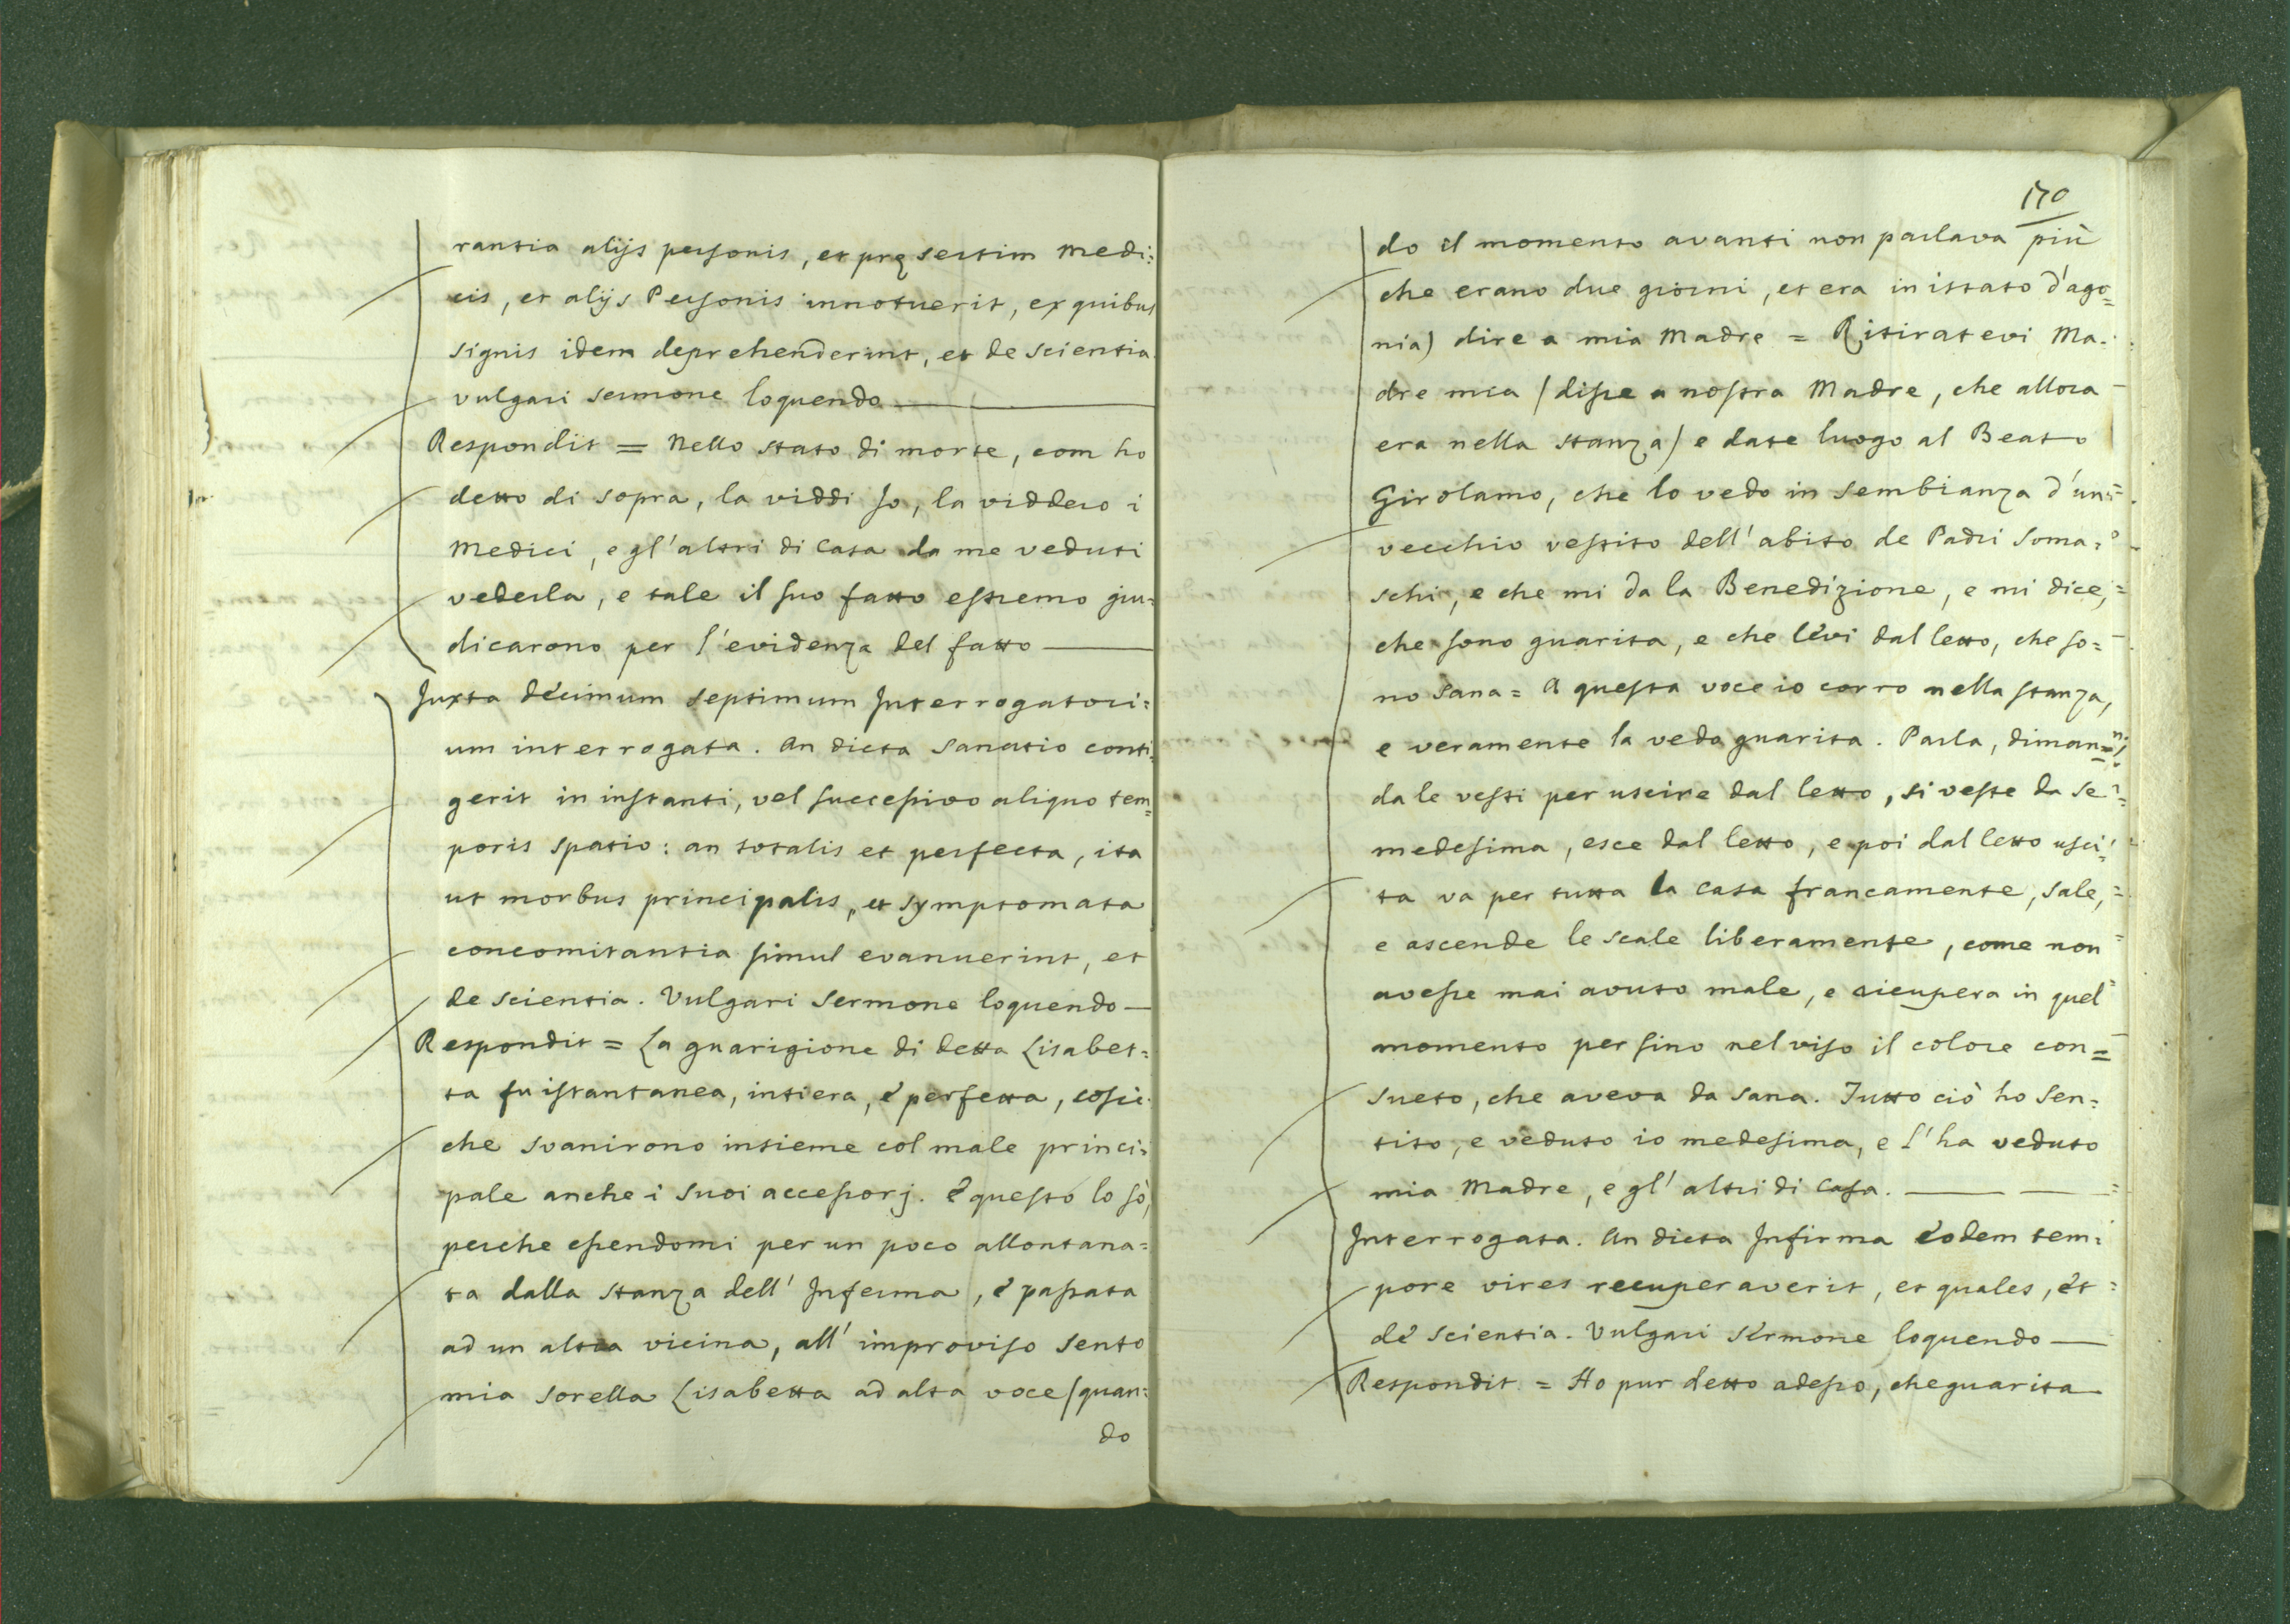 rantia alijs personis, et pręsertim Medi:
cis, et alijs Personis innotuerit, ex quibus
signis idem deprehenderint, et de scientia
vulgari sermone loquendo
Respondit = Nello stato di morte, com ho
detto di sopra, la viddi Io, la viddero i
Medici, e gl'altri di Casa da me veduti
vederla, e tale il suo fatto estremo giu:
dicarono per l'evidenza del fatto
Juxta décimum septimum Interrogatori:
um interrogata. An dicta sanatio conti:
gerit in instanti, vel successivo aliquo tem=
poris spatio: an totalis et perfecta, ita
ut morbus principalis, et symptomata
concomitantia simul evanuerint, et
de scientia. Vulgari Sermone loquendo
Respondit = La guarigione di detta Lisabet:
ta fu istantanea, intiera, é perfetta, cosic:
che svanirono insieme col male princi:
pale anche i suoi accessorj. é questo lo sò,
perche essendomi per un poco allontana=
ta dalla stanza dell' Inferma, é passata
ad un altra vicina, all' improviso sento
mia sorella Lisabetta ad alta voce (quan:
do
170
do il momento avanti non parlava più
che erano due giorni, et era in istato d'ago=
nia) dire a mia Madre = Ritiratevi Ma.
dre mia (disse a nostra Madre, che allora
era nella stanza) e date luogo al Beato
Girolamo, che lo vedo in sembianza d'un
vecchio vestito dell'abito de Padri Soma:
schi, e che mi da la Benedizione, e mi dice,
che sono guarita, e che lévi dal letto, che so=
no sana = A questa voce io corro nella stanza,
e veramente la vedo guarita. Parla, diman=
da le vesti per uscire dal letto, si veste da se
medesima, esce dal letto, e poi dal letto usci:
ta va per tutta la casa francamente, sale,
e ascende le scale liberamente, come non
avesse mai avuto male, e ricupera in quel
momento persino nel viso il colore con=
sueto, che aveva da sana. Tutto ciò ho sen:
tito, e veduto io medesima, e l'ha veduto
mia Madre, e gl' altri di Casa.
Interrogata. An dicta Infirma éodem tem:
pore vires recuperaverit, et quales, ét
dé scientia. Vulgari sérmone loquendo
Respondit = Ho pur detto adesso, che guarita